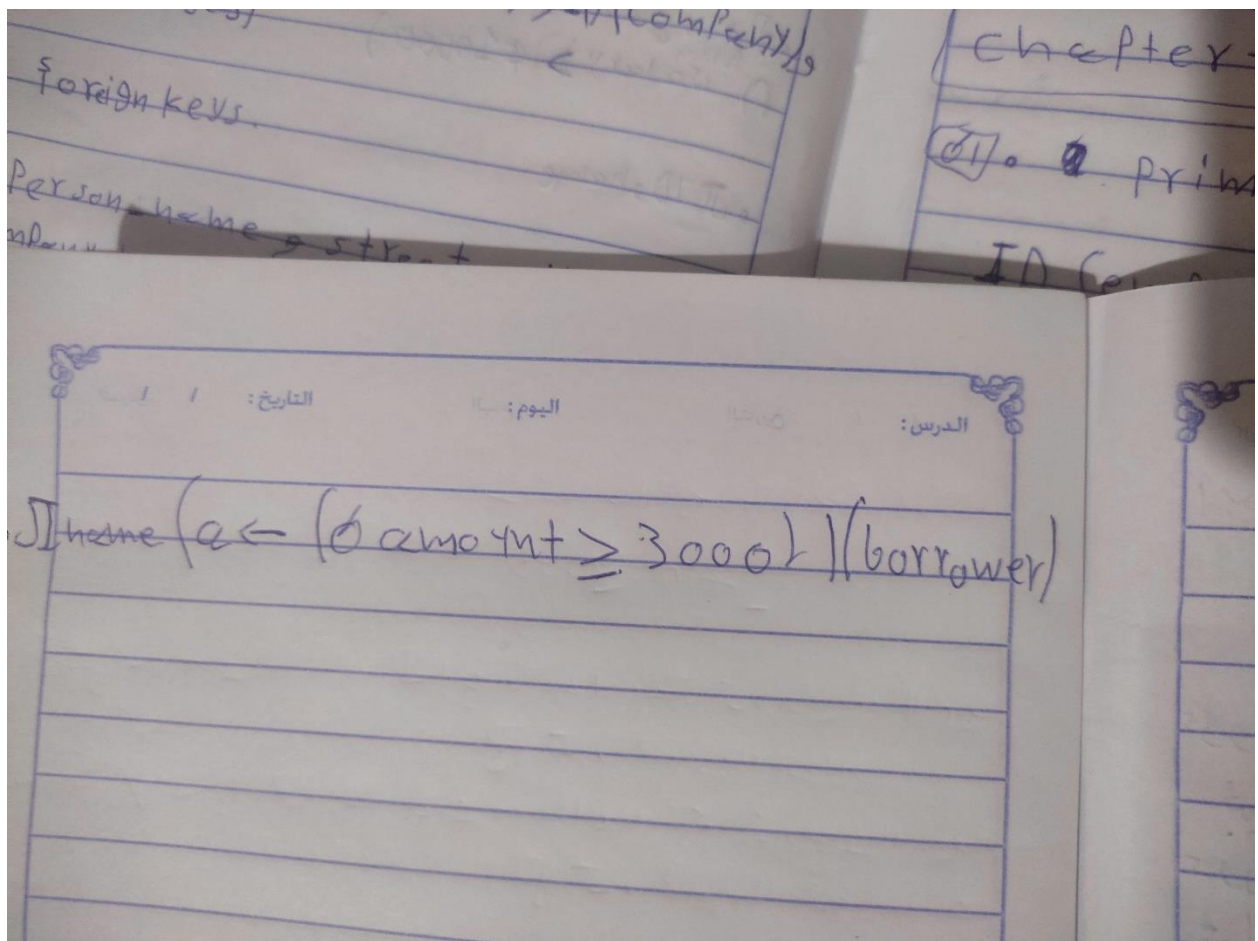 (Company),
←
foreign keys.
Person-name, street
chapter
01. prim
ID (
التاريخ: / /
اليوم:
الدرس:
Π name (a ← (σ amount ≥ 3000))(borrower)